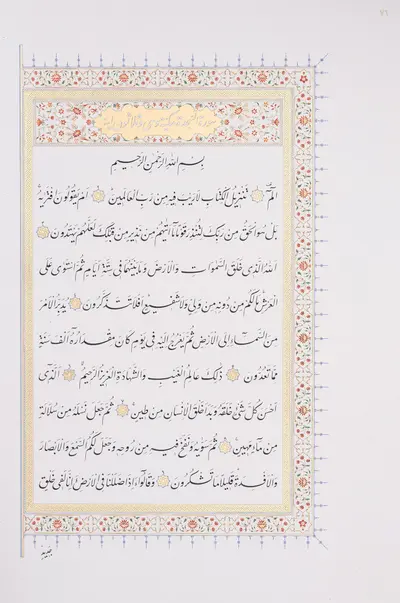 بِسْمِ اللهِ الرَّحْمٰنِ الرَّحِيمِ
الٓمٓ تَنْزِيلُ الْكِتَابِ لَا رَيْبَ فِيهِ مِنْ رَبِّ الْعَالَمِينَ اَمْ يَقُولُونَ افْتَرٰيهُ
بَلْ هُوَ الْحَقُّ مِنْ رَبِّكَ لِتُنْذِرَ قَوْمًا مَٓا اَتٰيهُمْ مِنْ نَذِيرٍ مِنْ قَبْلِكَ لَعَلَّهُمْ يَهْتَدُونَ
اَللهُ الَّذِي خَلَقَ السَّمٰوَاتِ وَالْاَرْضَ وَمَا بَيْنَهُمَا فِي سِتَّةِ اَيَّامٍ ثُمَّ اسْتَوٰى عَلَى
الْعَرْشِ مَا لَكُمْ مِنْ دُونِهِ مِنْ وَلِيٍّ وَلَا شَفِيعٍ اَفَلَا تَتَذَكَّرُونَ يُدَبِّرُ الْاَمْرَ
مِنَ السَّمَٓاءِ اِلَى الْاَرْضِ ثُمَّ يَعْرُجُ اِلَيْهِ فِي يَوْمٍ كَانَ مِقْدَارُهُٓ اَلْفَ سَنَةٍ
مِمَّا تَعُدُّونَ ذٰلِكَ عَالِمُ الْغَيْبِ وَالشَّهَادَةِ الْعَزِيزُ الرَّحِيمُ اَلَّذِٓي
اَحْسَنَ كُلَّ شَيْءٍ خَلَقَهُ وَبَدَاَ خَلْقَ الْاِنْسَانِ مِنْ طِينٍ ثُمَّ جَعَلَ نَسْلَهُ مِنْ سُلَالَةٍ
مِنْ مَٓاءٍ مَهِينٍ ثُمَّ سَوّٰيهُ وَنَفَخَ فِيهِ مِنْ رُوحِهِ وَجَعَلَ لَكُمُ السَّمْعَ وَالْاَبْصَارَ
وَالْاَفْـِٔدَةَ قَلِيلًا مَا تَشْكُرُونَ وَقَالُٓوا ءَاِذَا ضَلَلْنَا فِي الْاَرْضِ ءَاِنَّا لَفِي خَلْقٍ
جديد